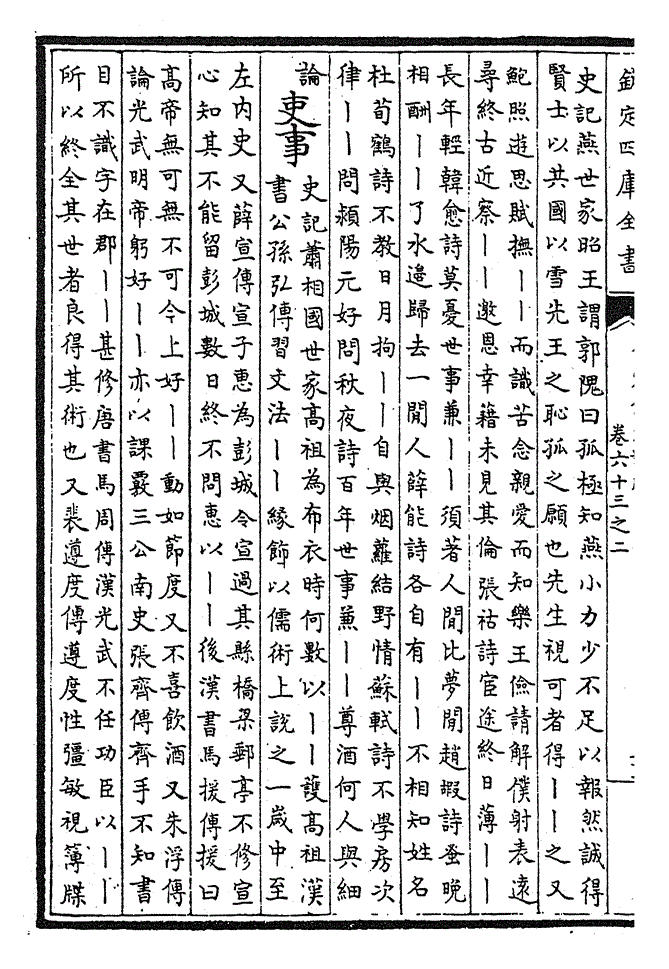 欽定四庫全書
卷六十三之二
史記燕世家昭王謂郭隗曰孤極知燕小力少不足以報然誠得
賢士以共國以雪先王之恥孤之願也先生視可者得丨丨之又
鮑照遊思賦撫丨丨而識苦念親愛而知樂王儉請解僕射表遠
尋終古近察丨丨邀恩幸藉未見其倫張祜詩宦途終日薄丨丨
長年輕韓愈詩莫憂世事兼丨丨須著人間比夢間趙嘏詩蚤晚
相酬丨丨了水邊歸去一閒人薛能詩各自有丨丨不相知姓名
杜荀鶴詩不教日月拘丨丨自與烟蘿結野情蘇軾詩不學房次
律丨丨問潁陽元好問秋夜詩百年世事兼丨丨尊酒何人與細
論
吏事
史記蕭相國世家高祖為布衣時何數以丨丨護高祖漢
書公孫弘傳習文法丨丨緣飾以儒術上說之一歲中至
左內史又薛宣傳宣子惠為彭城令宣過其縣橋梁郵亭不修宣
心知其不能留彭城數日終不問惠以丨丨後漢書馬援傳援曰
高帝無可無不可今上好丨丨動如節度又不喜飲酒又朱浮傳
論光武明帝躬好丨丨亦以課覈三公南史張齊傳齊手不知書
目不識字在郡丨丨甚修唐書馬周傳漢光武不任功臣以丨丨
所以終全其世者良得其術也又裴遵度傳遵度性彊敏視簿牒